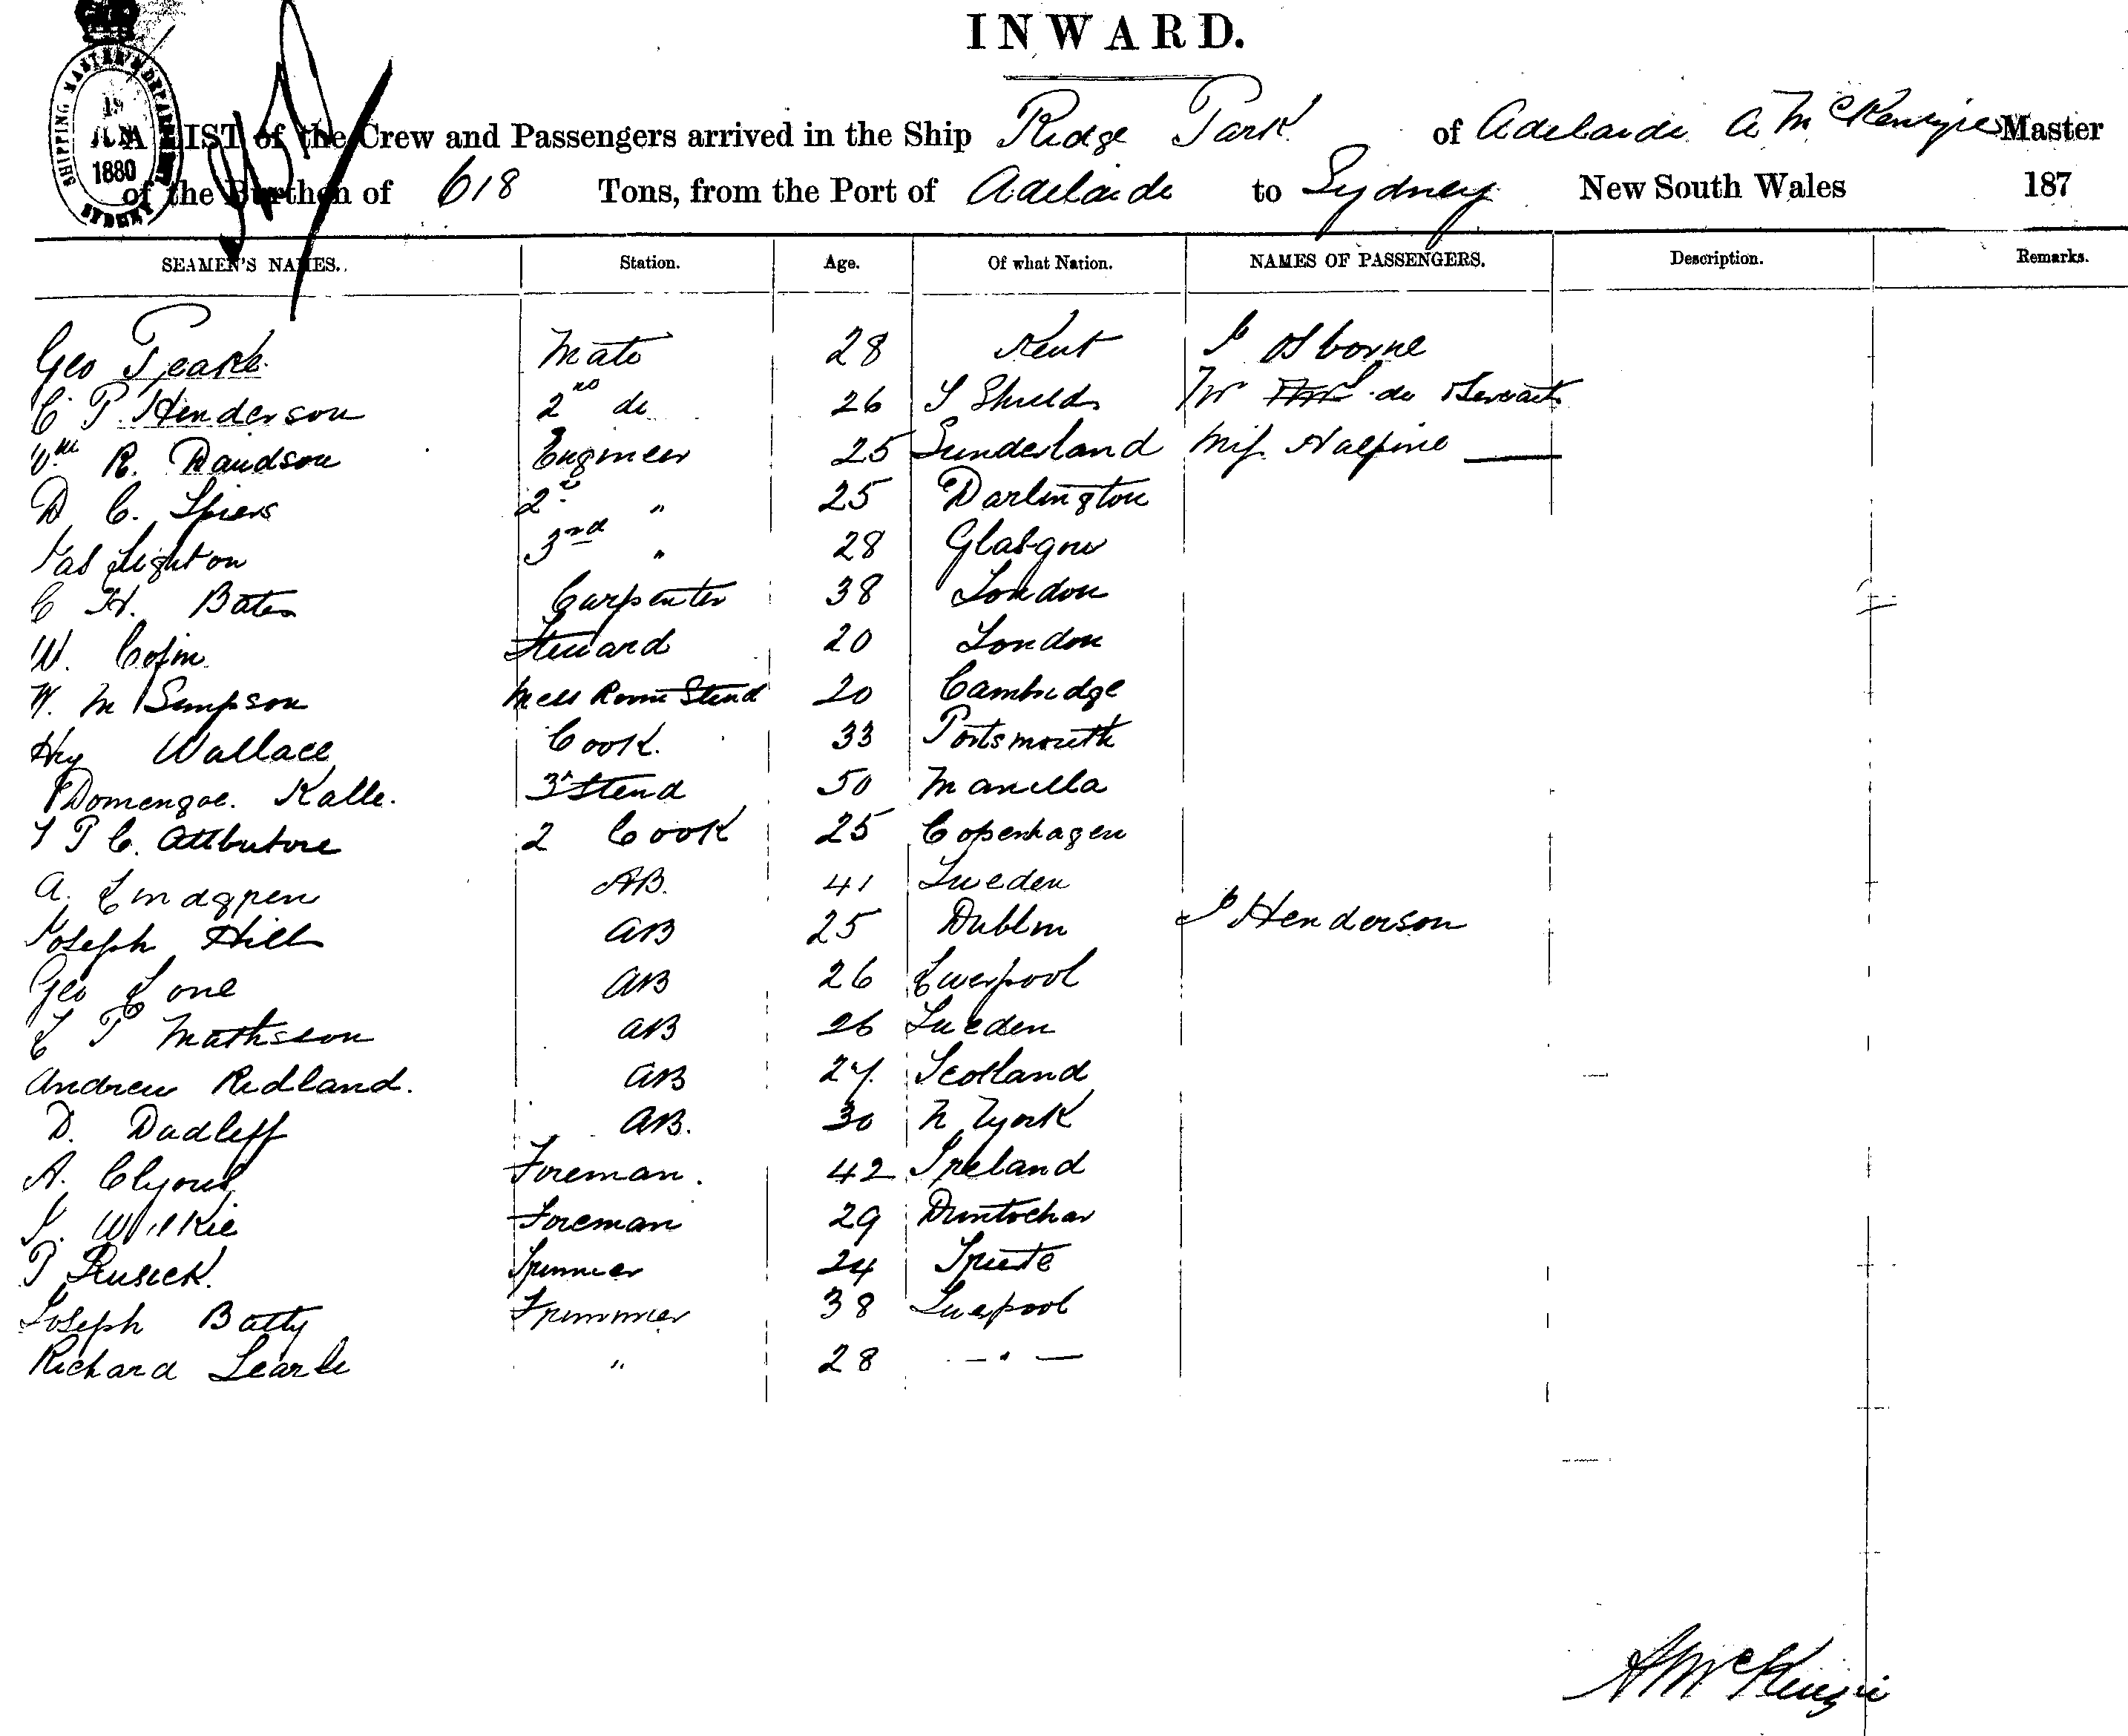 INWARD.
SHIPPING MASTER'S DEPARTMENT 19 1880 SYDNEY
A LIST of the Crew and Passengers arrived in the Ship Ridge Park of Adelaide A McKenzie Master
of the Burthen of 618 Tons, from the Port of Adelaide to Sydney New South Wales 187
SEAMEN'S NAMES. Station. Age. Of what Nation. NAMES OF PASSENGERS. Description. Remarks.
Geo Peake Mate 28 Kent J Osborne
C P. Henderson 2nd do 26 S Shields Mr
Wm R. Davidson Engineer 25 Sunderland Miss Halpine
D C. Spiers 2d " 25 Darlington
Jas Lighton 3rd " 28 Glasgow
C H. Bates Carpenter 38 London
W. Steward 20 London
W. M Simpson Mess Room Stewd 20 Cambridge
Hy Wallace Cook. 33 Portsmouth
Kalle. 3d Stewd 50 Manilla
2 Cook 25 Copenhagen
A. Lindgren AB. 41 Sweden
Joseph Hills AB 25 Dublin J Henderson
Geo Lone AB 26 Liverpool
AB 26 Sweden
Andrew Ridland. AB 27. Scotland
D. AB. 30 N York
A. Foreman. 42 Ireland
J. Wilkie Foreman 29
P Trimmer 24
Joseph Batty Trimmer 38 Liverpool
Richard Searle " 28 — " —
A McKenzie